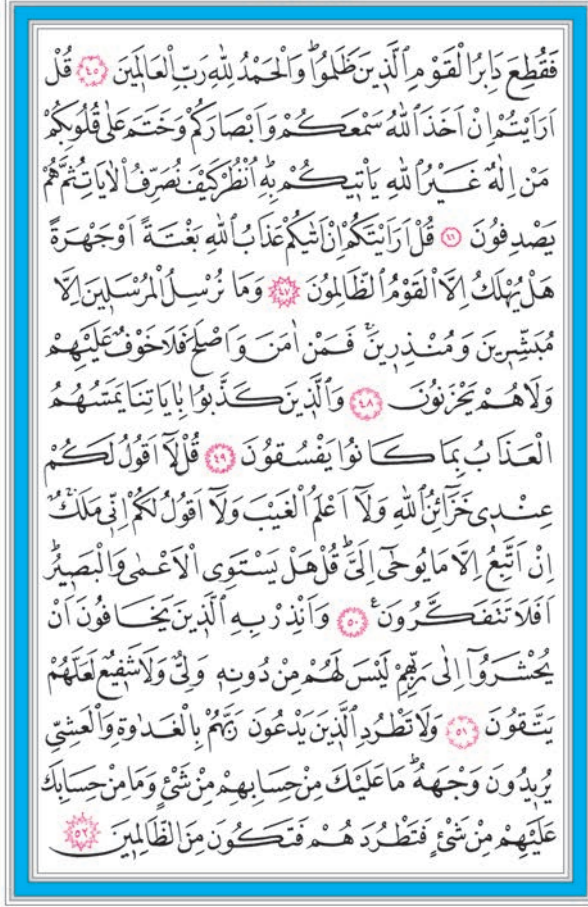 فَقُطِعَ دَابِرُ الْقَوْمِ الَّذٖينَ ظَلَمُواؕ وَالْحَمْدُ لِلّٰهِ رَبِّ الْعَالَمٖينَ ﴿٤٥﴾ قُلْ
اَرَاَيْتُمْ اِنْ اَخَذَ اللّٰهُ سَمْعَكُمْ وَاَبْصَارَكُمْ وَخَتَمَ عَلٰى قُلُوبِكُمْ
مَنْ اِلٰهٌ غَيْرُ اللّٰهِ يَاْتٖيكُمْ بِهٖؕ اُنْظُرْ كَيْفَ نُصَرِّفُ الْاٰيَاتِ ثُمَّ هُمْ
يَصْدِفُونَ ﴿٤٦﴾ قُلْ اَرَاَيْتَكُمْ اِنْ اَتٰيكُمْ عَذَابُ اللّٰهِ بَغْتَةً اَوْ جَهْرَةً
هَلْ يُهْلَكُ اِلَّا الْقَوْمُ الظَّالِمُونَ ﴿٤٧﴾ وَمَا نُرْسِلُ الْمُرْسَلٖينَ اِلَّا
مُبَشِّرٖينَ وَمُنْذِرٖينَۚ فَمَنْ اٰمَنَ وَاَصْلَحَ فَلَا خَوْفٌ عَلَيْهِمْ
وَلَا هُمْ يَحْزَنُونَ ﴿٤٨﴾ وَالَّذٖينَ كَذَّبُوا بِاٰيَاتِنَا يَمَسُّهُمُ
الْعَذَابُ بِمَا كَانُوا يَفْسُقُونَ ﴿٤٩﴾ قُلْ لَٓا اَقُولُ لَكُمْ
عِنْدٖى خَزَٓائِنُ اللّٰهِ وَلَٓا اَعْلَمُ الْغَيْبَ وَلَٓا اَقُولُ لَكُمْ اِنّٖى مَلَكٌۚ
اِنْ اَتَّبِعُ اِلَّا مَا يُوحٰٓى اِلَیَّؕ قُلْ هَلْ يَسْتَوِى الْاَعْمٰى وَالْبَصٖيرُؕ
اَفَلَا تَتَفَكَّرُونَࣖ ﴿٥٠﴾ وَاَنْذِرْ بِهِ الَّذٖينَ يَخَافُونَ اَنْ
يُحْشَرُٓوا اِلٰى رَبِّهِمْ لَيْسَ لَهُمْ مِنْ دُونِهٖ وَلِیٌّ وَلَا شَفٖيعٌ لَعَلَّهُمْ
يَتَّقُونَ ﴿٥١﴾ وَلَا تَطْرُدِ الَّذٖينَ يَدْعُونَ رَبَّهُمْ بِالْغَدٰوةِ وَالْعَشِیِّ
يُرٖيدُونَ وَجْهَهُؕ مَا عَلَيْكَ مِنْ حِسَابِهِمْ مِنْ شَیْءٍ وَمَا مِنْ حِسَابِكَ
عَلَيْهِمْ مِنْ شَیْءٍ فَتَطْرُدَهُمْ فَتَكُونَ مِنَ الظَّالِمٖينَ ﴿٥٢﴾